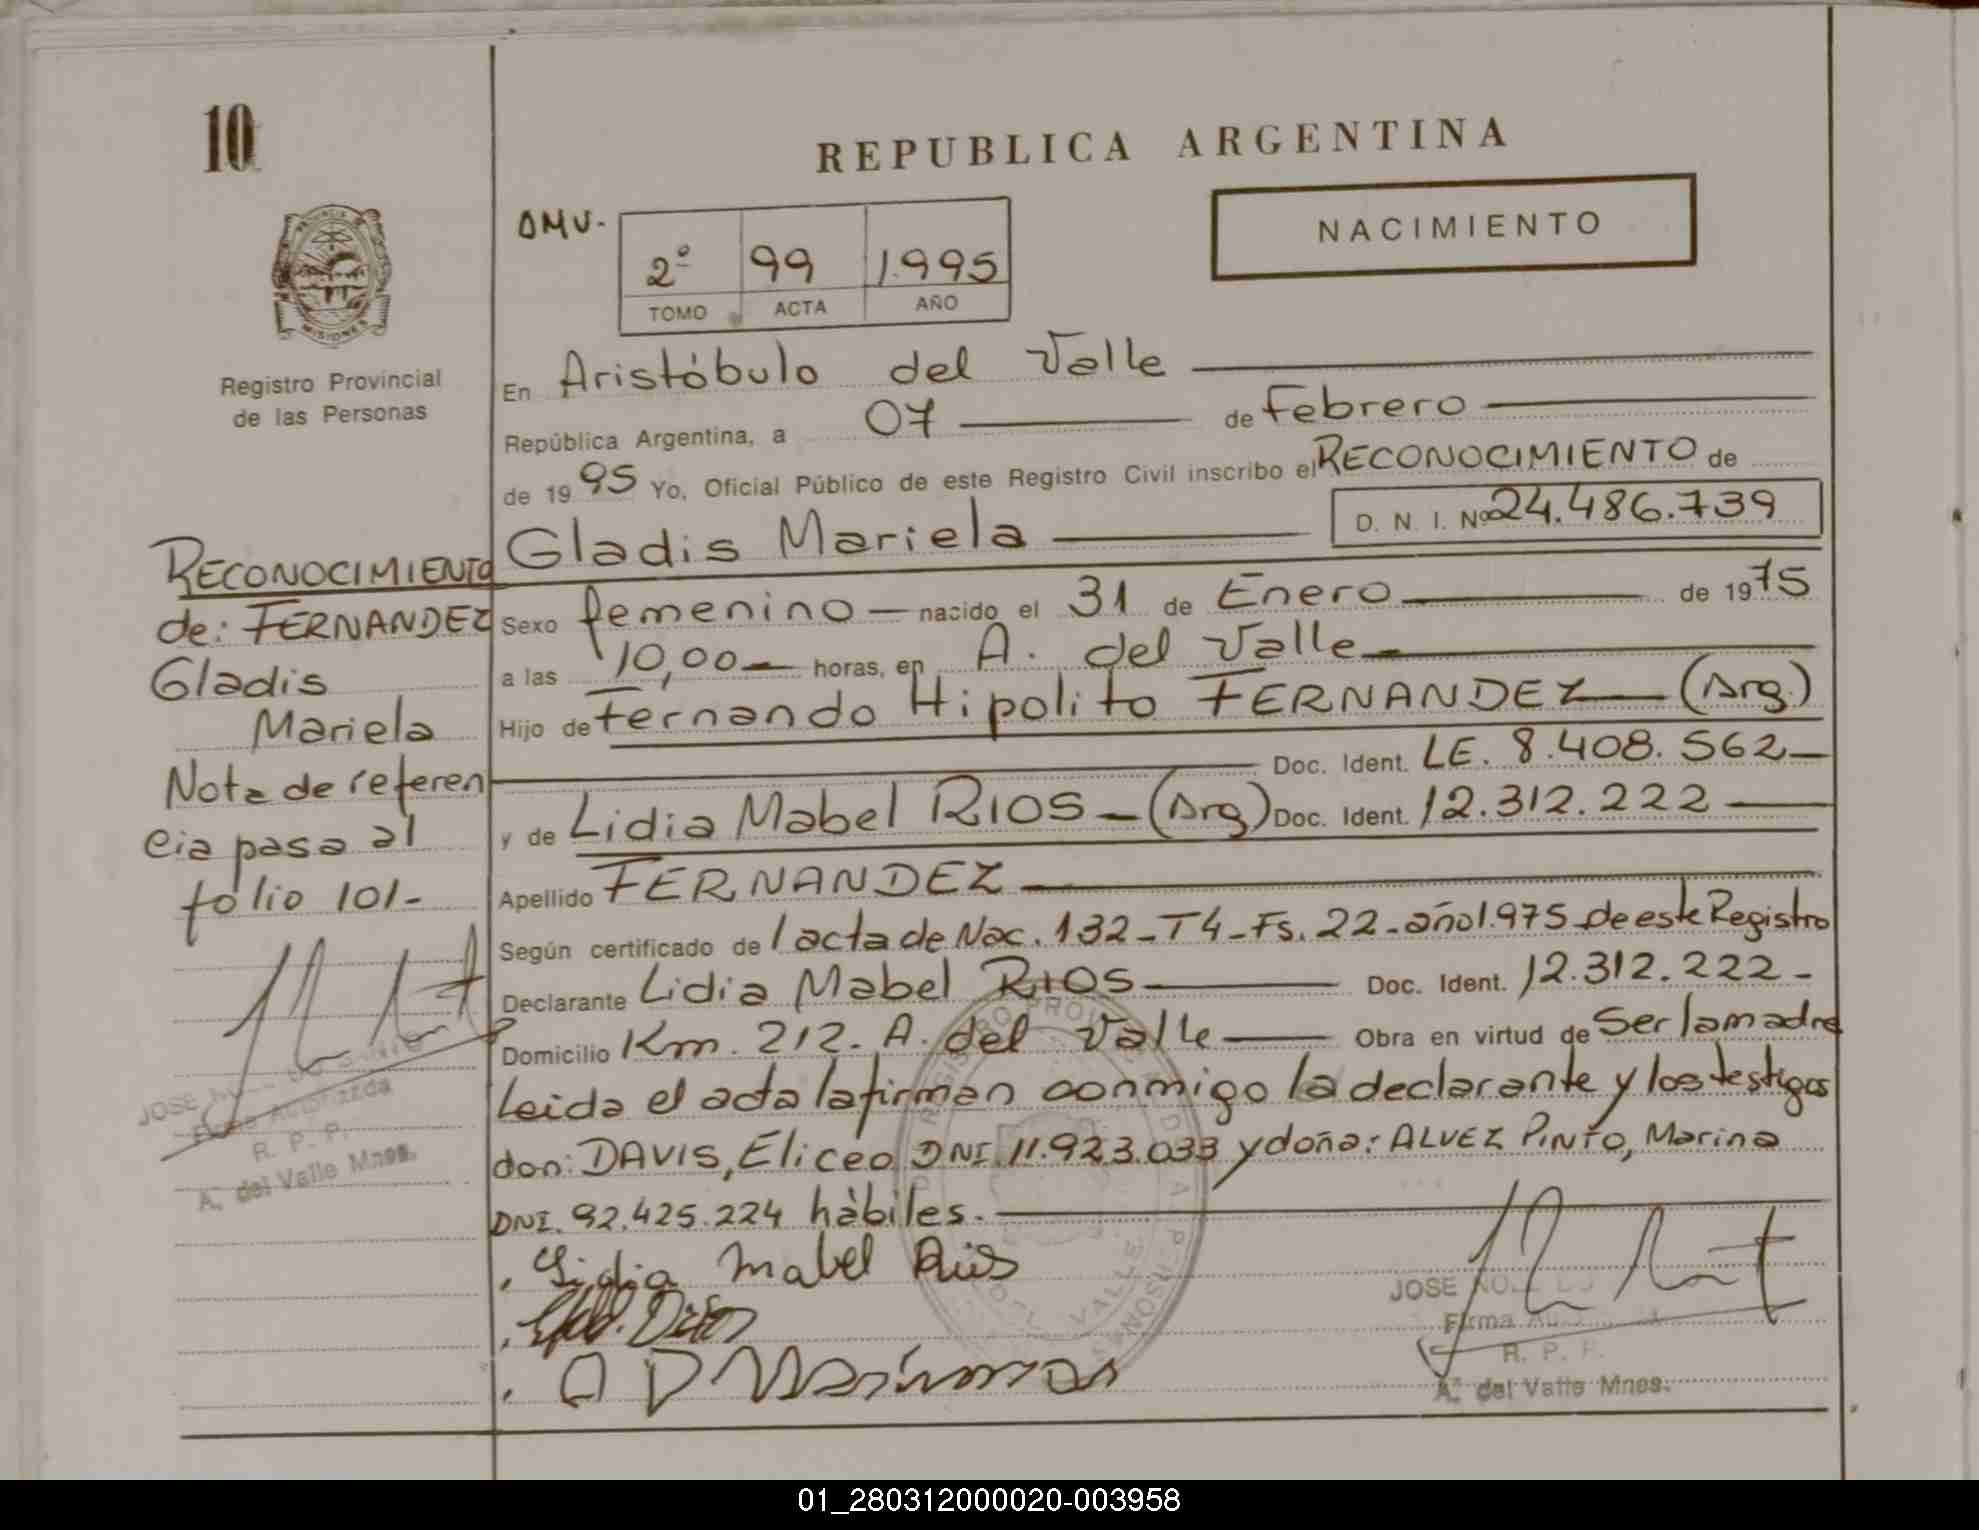 10
REPUBLICA ARGENTINA
NACIMIENTO
DMV.
2º 99 1.995
TOMO ACTA AÑO
PROVINCIA DE
MISIONES
Registro Provincial
de las Personas
En Aristóbulo del Valle
República Argentina, a 07 de Febrero
de 1995 Yo, Oficial Público de este Registro Civil inscribo el RECONOCIMIENTO de
Gladis Mariela D. N. I. Nº 24.486.739
Sexo femenino nacido el 31 de Enero de 1975
a las 10,00 horas, en A. del Valle
Hijo de Fernando Hipolito FERNANDEZ (Arg.)
Doc. Ident. LE. 8.408.562
y de Lidia Mabel RIOS (Arg) Doc. Ident. 12.312.222
Apellido FERNANDEZ
Según certificado de 1 acta de Nac. 132-T4-Fs. 22-año 1.975 de este Registro
Declarante Lidia Mabel RIOS Doc. Ident. 12.312.222-
Domicilio Km. 212. A. del Valle Obra en virtud de Ser la madre
Leida el acta la firman conmigo la declarante y los testigos
don: DAVIS, Eliceo DNI. 11.923.033 y doña: ALVEZ PINTO, Marina
DNI. 92.425.224 hàbiles.
Lidia Mabel Rios
RECONOCIMIENTO
de: FERNANDEZ
Gladis
Mariela
Nota de referen
cia pasa al
folio 101-
JOSE
Firma Autorizada
R. P. P.
A. del Valle Mnes.
JOSE
Firma
R. P. P.
A. del Valle Mnes.
01_280312000020-003958